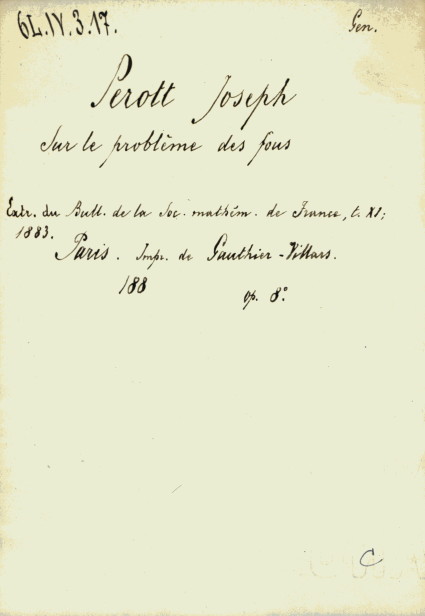 6L.IV.3.17.
Gen.
Perott Joseph
Sur le problème des fous
Extr. du Bull. de la Soc. mathém. de France, t. XI;
1883.
Paris. Impr. de Gauthier-Villars.
188
op. 8°
C